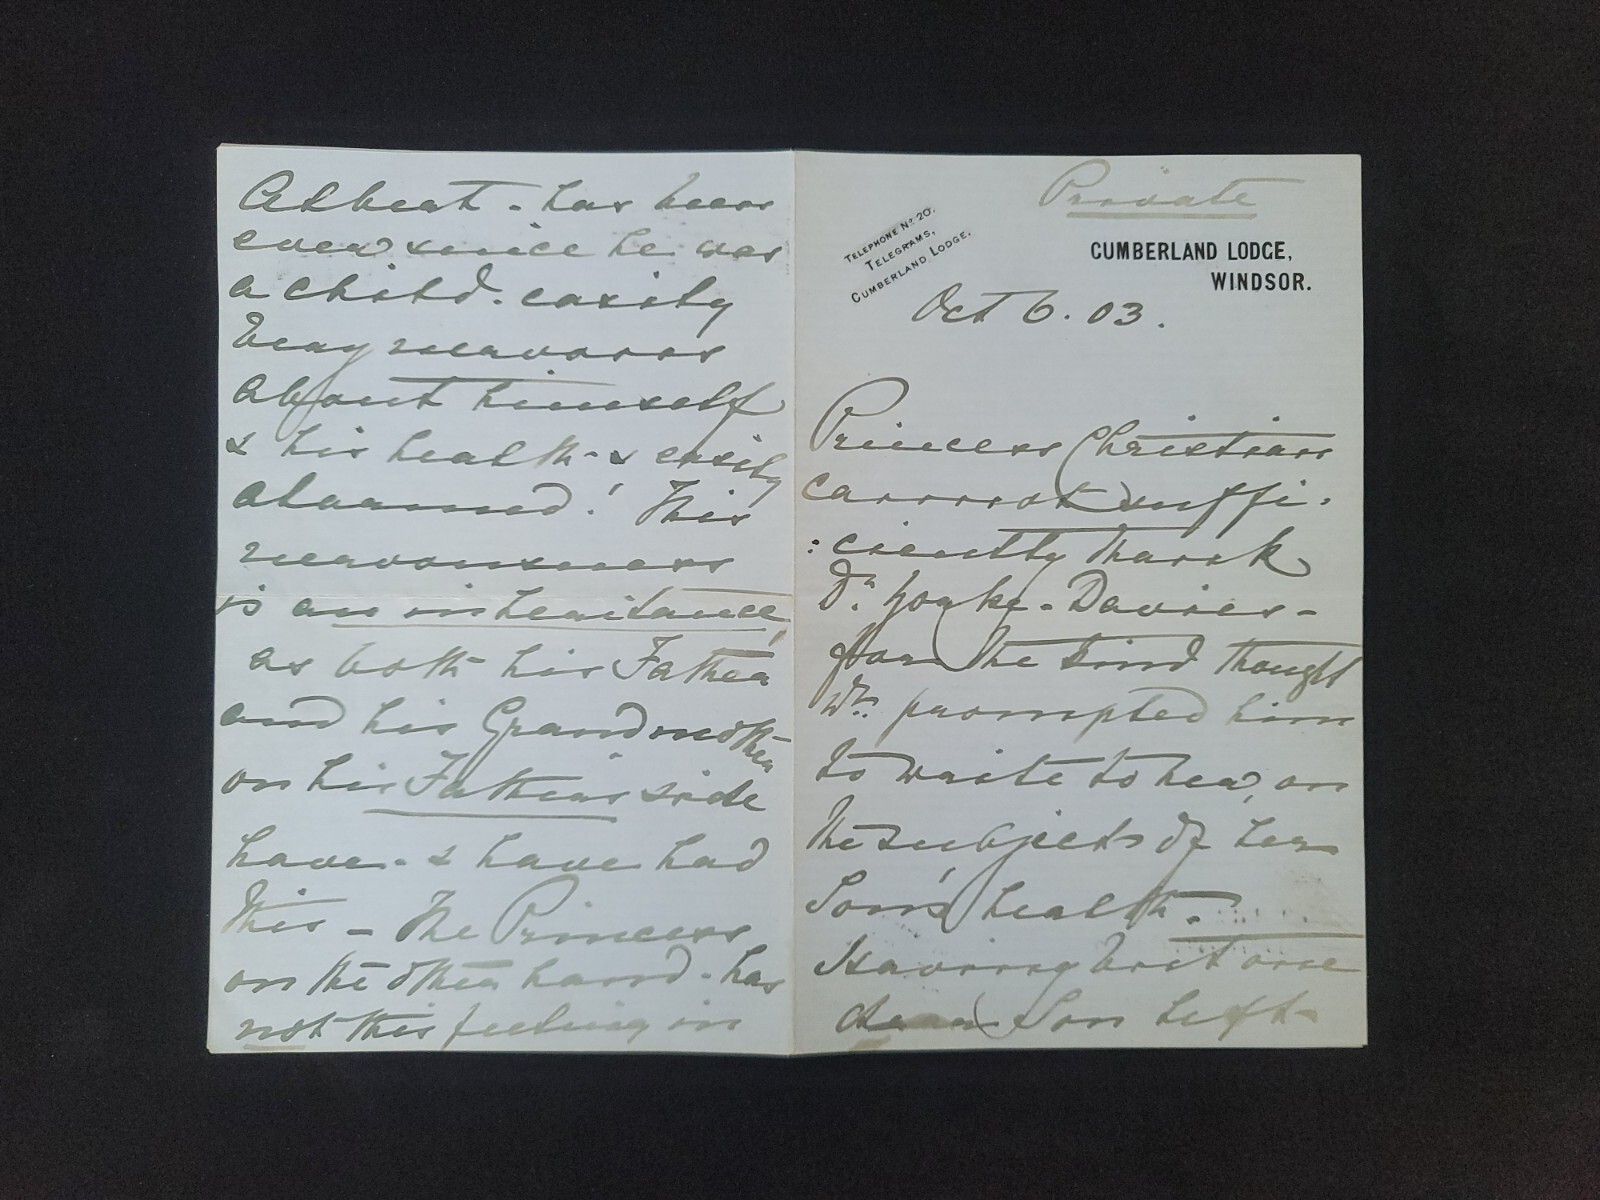 Private
TELEPHONE No. 20.
TELEGRAMS,
CUMBERLAND LODGE.
CUMBERLAND LODGE,
WINDSOR.
Oct 6. 03.
Princess Christian
cannot suffi-
:ciently thank
Dr. Yorke-Davies-
for the kind thought
wh: prompted him
to write to her, on
the subject of her
Son's health.
Having but one
dear Son left-
Albert - has been
ever since he was
a child - easily
very nervous
about himself
& his health - & easily
alarmed! This
nervousness
is an inheritance,
as both his Father
and his Grandmother
on his Father's side
have - & have had
this - The Princess
on the other hand - has
not this feeling in